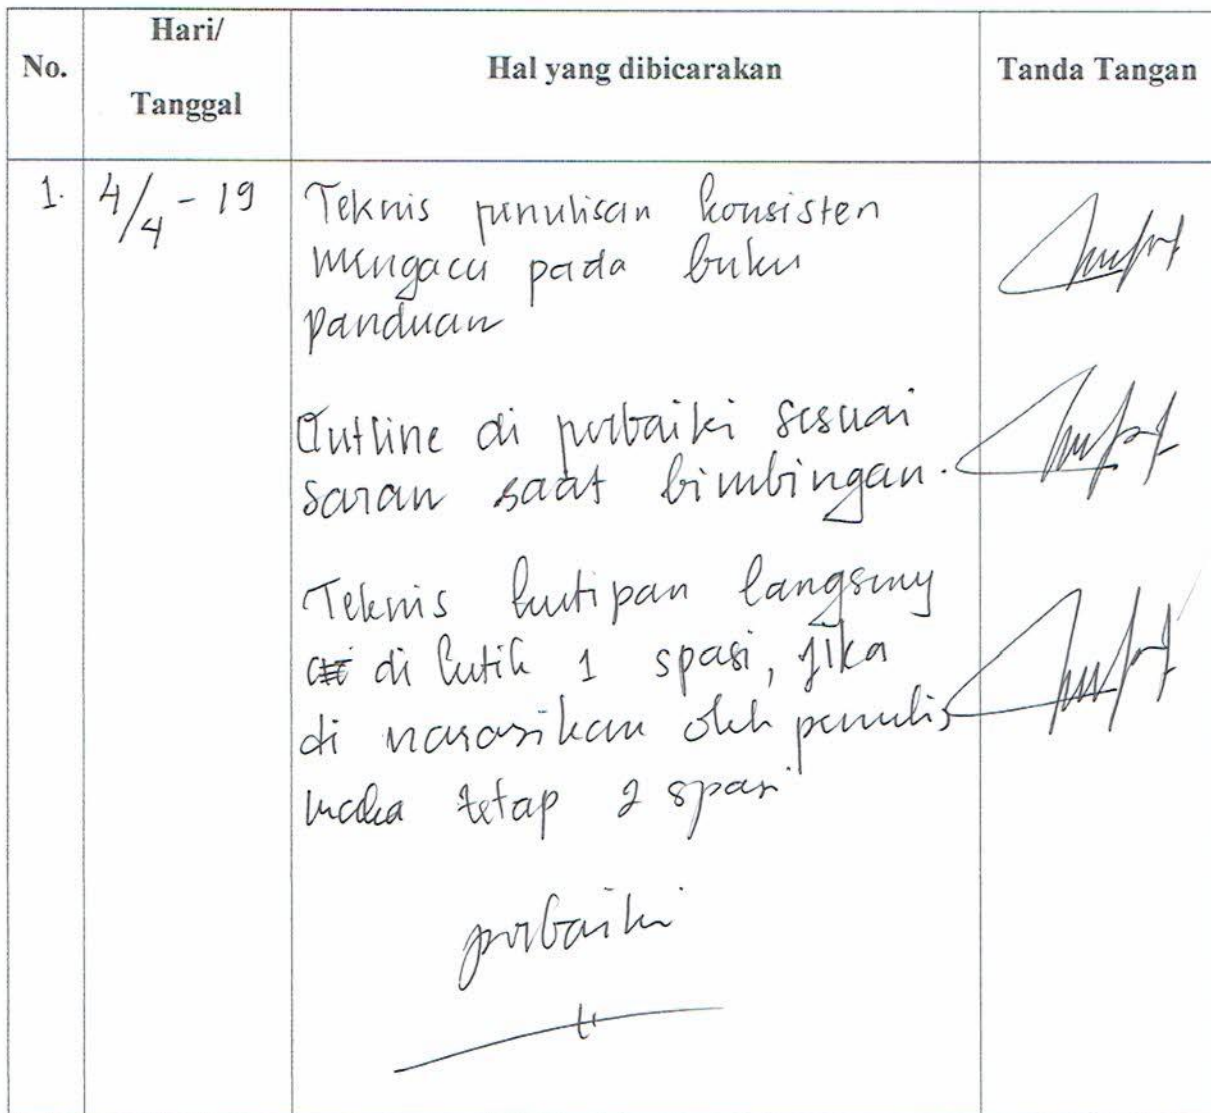 No.
Hari/
Tanggal
Hal yang dibicarakan
Tanda Tangan
1. 4/4 - 19
Teknis penulisan konsisten
mengacu pada buku
panduan
Outline di perbaiki sesuai
saran saat bimbingan.
Teknis kutipan langsung
di kutik 1 spasi, jika
di narasikan oleh penulis
maka tetap 2 spasi
perbaiki